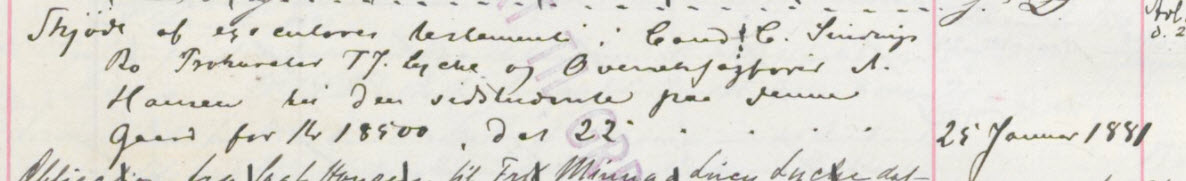 Skjøde af executores testamenti i Cand. C. Sindings
Bo Prokurator T. J. Lycke og Overretssagfører A.
Hansen til den sidstnævnte paa denne
Gaard for Kr 18500, Dat 22 . . . . 25 Januar 1881
til Frk Minna Lucie Lycke dat